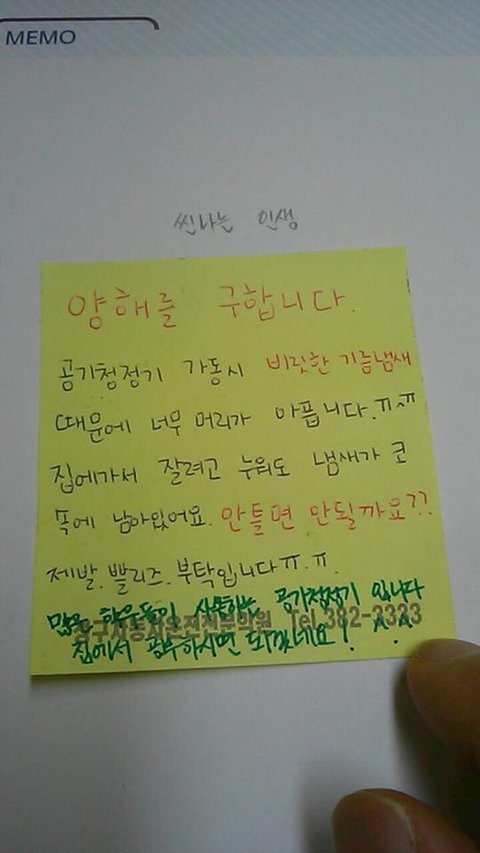 MEMO
씬나는 인생
양해를 구합니다.
공기청정기 가동시 비릿한 기름냄새
때문에 너무 머리가 아픕니다.ㅠ^ㅠ
집에가서 잘려고 누워도 냄새가 코
속에 남아있어요. 안틀면 안될까요??
제발.쁠리즈.부탁입니다ㅠ.ㅠ.
많은 학우들이 사용하는 공기청정기 입니다
Tel.382-3333
집에서 공부하시면 되겠네요! ^.^